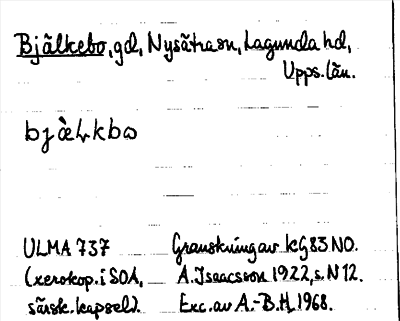 Bjälkebo, gd, Nysätra sn, Lagunda hd,
Upps. län.
bjæ̀Lkbω
ULMA 737 Granskning av KG 83 NO.
(xerokop. i SOA, A. Isaacsson 1922, s. N 12.
särsk. kapsel). Exc. av A.-B. H. 1968.